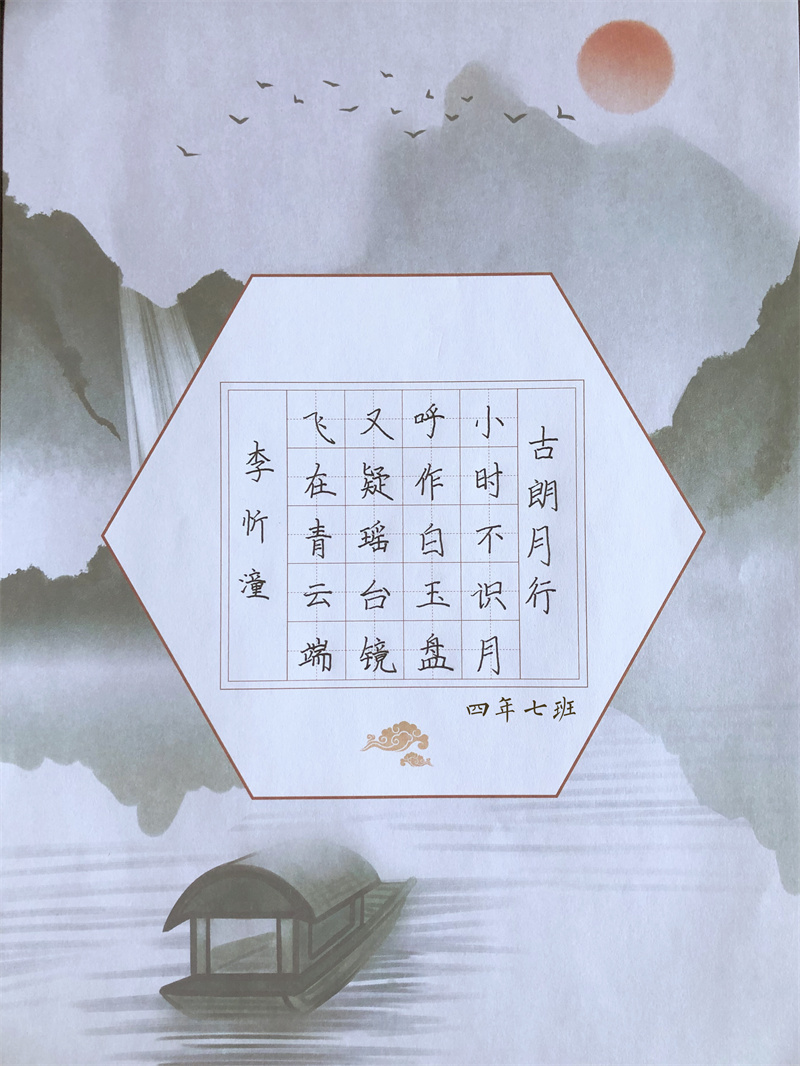 古朗月行
小时不识月
呼作白玉盘
又疑瑶台镜
飞在青云端
李忻潼
四年七班